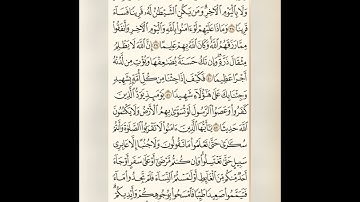 وَلَا بِٱلْيَوْمِ ٱلْـَٔاخِرِ وَمَن يَكُنِ ٱلشَّيْطَـٰنُ لَهُۥ قَرِينًا فَسَآءَ
قَرِينًا ﴿٣٨﴾ وَمَاذَا عَلَيْهِمْ لَوْ ءَامَنُوا۟ بِٱللَّهِ وَٱلْيَوْمِ ٱلْـَٔاخِرِ وَأَنفَقُوا۟
مِمَّا رَزَقَهُمُ ٱللَّهُ وَكَانَ ٱللَّهُ بِهِمْ عَلِيمًا ﴿٣٩﴾ إِنَّ ٱللَّهَ لَا يَظْلِمُ
مِثْقَالَ ذَرَّةٍ وَإِن تَكُ حَسَنَةً يُضَـٰعِفْهَا وَيُؤْتِ مِن لَّدُنْهُ
أَجْرًا عَظِيمًا ﴿٤٠﴾ فَكَيْفَ إِذَا جِئْنَا مِن كُلِّ أُمَّةٍۭ بِشَهِيدٍ
وَجِئْنَا بِكَ عَلَىٰ هَـٰٓؤُلَآءِ شَهِيدًا ﴿٤١﴾ يَوْمَئِذٍ يَوَدُّ ٱلَّذِينَ
كَفَرُوا۟ وَعَصَوُا۟ ٱلرَّسُولَ لَوْ تُسَوَّىٰ بِهِمُ ٱلْأَرْضُ وَلَا يَكْتُمُونَ
ٱللَّهَ حَدِيثًا ﴿٤٢﴾ يَـٰٓأَيُّهَا ٱلَّذِينَ ءَامَنُوا۟ لَا تَقْرَبُوا۟ ٱلصَّلَوٰةَ وَأَنتُمْ
سُكَـٰرَىٰ حَتَّىٰ تَعْلَمُوا۟ مَا تَقُولُونَ وَلَا جُنُبًا إِلَّا عَابِرِى
سَبِيلٍ حَتَّىٰ تَغْتَسِلُوا۟ وَإِن كُنتُم مَّرْضَىٰٓ أَوْ عَلَىٰ سَفَرٍ أَوْ جَآءَ
أَحَدٌ مِّنكُم مِّنَ ٱلْغَآئِطِ أَوْ لَـٰمَسْتُمُ ٱلنِّسَآءَ فَلَمْ تَجِدُوا۟ مَآءً
فَتَيَمَّمُوا۟ صَعِيدًا طَيِّبًا فَٱمْسَحُوا۟ بِوُجُوهِكُمْ وَأَيْدِيكُمْ